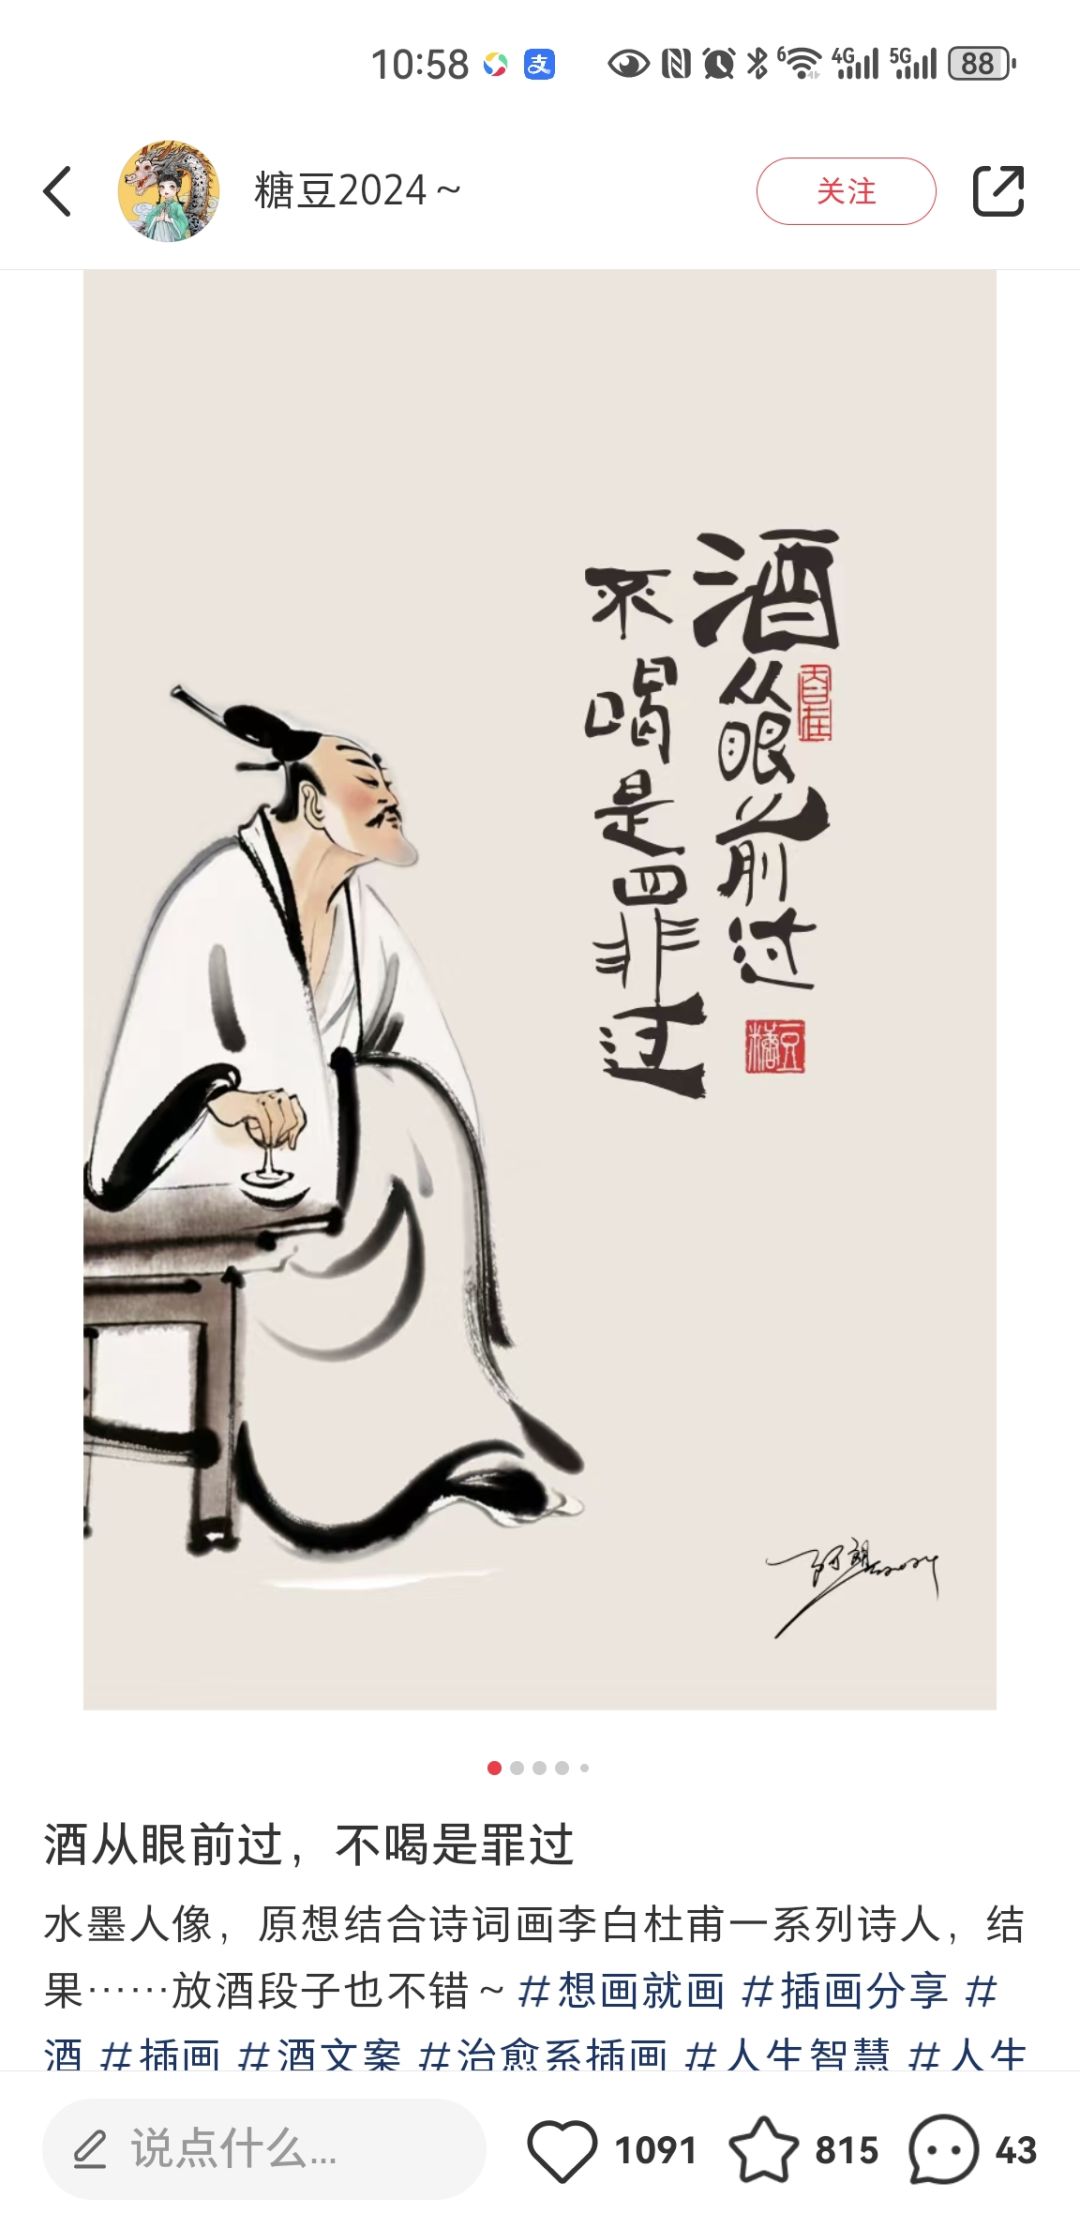 10:58
支
6
4G
5G
88
糖豆2024~
关注
酒从眼前过
不喝是罪过
糖豆
酒从眼前过，不喝是罪过
水墨人像，原想结合诗词画李白杜甫一系列诗人，结
果……放酒段子也不错~#想画就画 #插画分享 #
酒 #插画 #酒文案 #治愈系插画 #人生智慧 #人生
说点什么...
1091
815
43